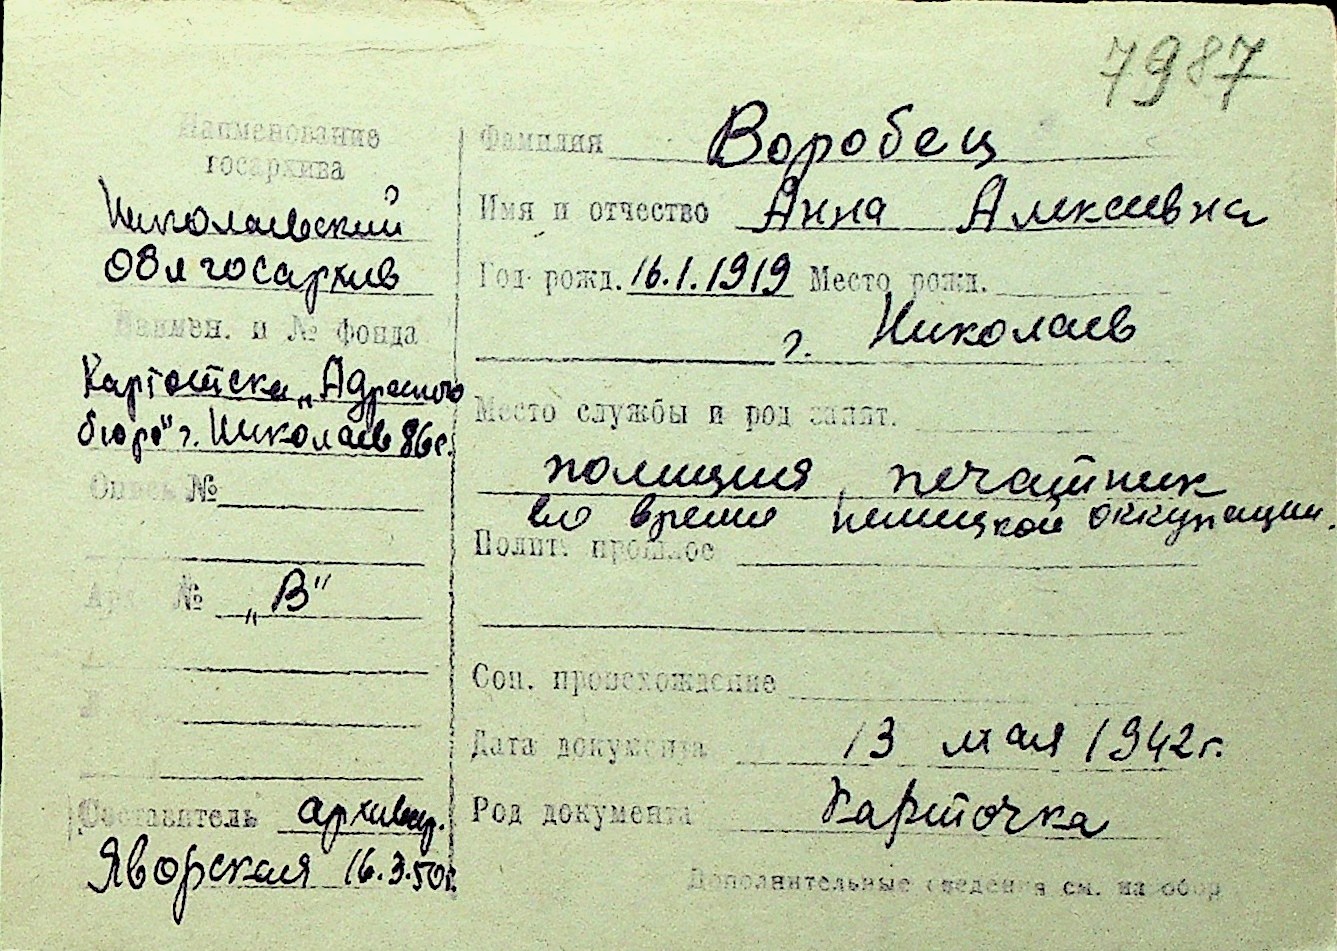 7987
Наименование
госархива
Николаевский
облгосархив
Наимен. и № фонда
Картотека „Адресного
бюро" г. Николаев
Опись №
Арх. № „В"
Составитель архивар.
Яворская 16.3.50г.
Фамилия Воробец
Имя и отчество Анна Алексеевна
Год рожд. 16.1.1919 Место рожд.
г. Николаев
Место службы и род занят.
полиция, печатник
во время немецкой оккупации.
Полит. прошлое
Соц. происхождение
Дата документа 13 мая 1942г.
Род документа Карточка
Дополнительные сведения см. на обор